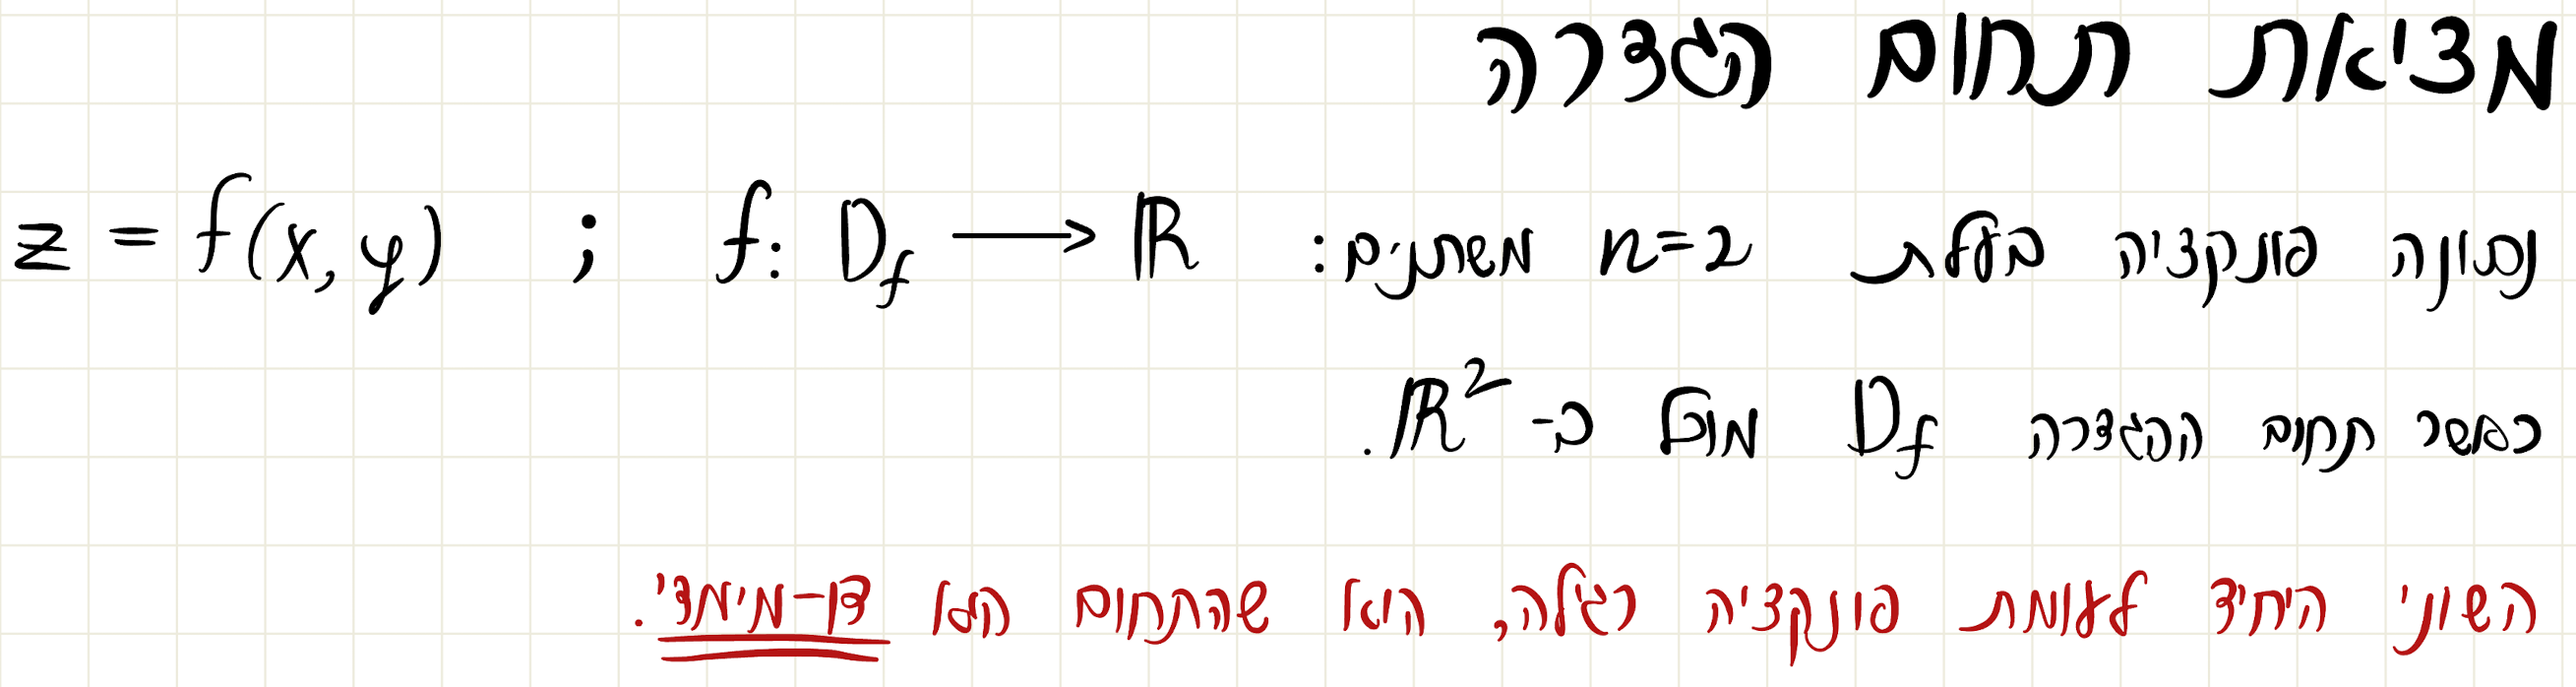 מציאת תחום הגדרה
נתונה פונקציה בעלת n=2 משתנים: f: D_f ⟶ ℝ ; z = f(x,y)
כאשר תחום ההגדרה D_f מוכל ב- ℝ².
השוני היחיד לעומת פונקציה רגילה, הוא שהתחום הוא דו-מימדי.